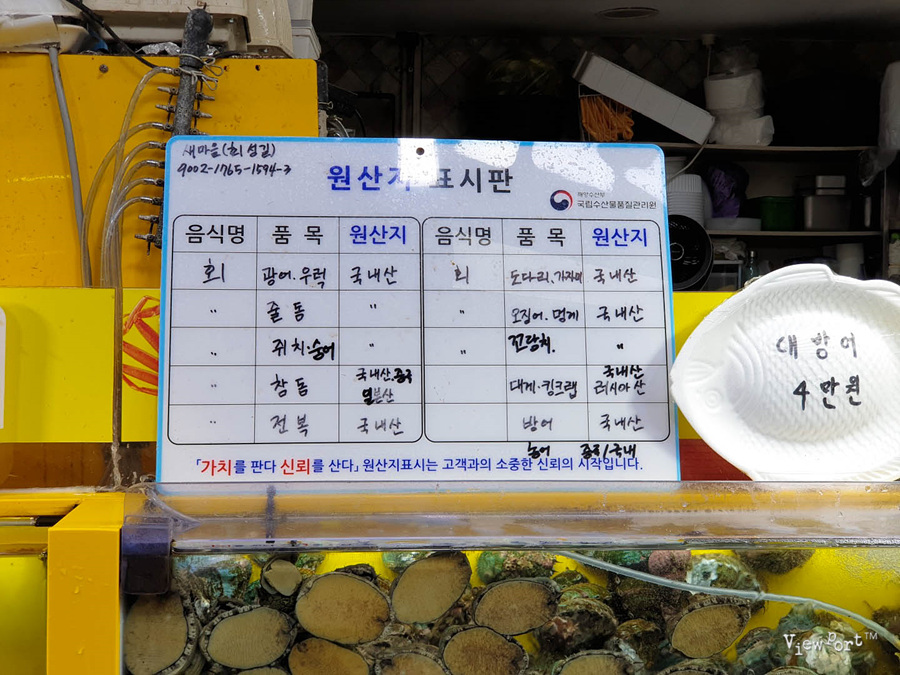 새마을(최성길)
9002-1765-1594-3
원산지 표시판
해양수산부
국립수산물품질관리원
음식명 품 목 원산지 음식명 품 목 원산지
회 광어.우럭 국내산 회 도다리.가자미 국내산
" 줄돔 " " 오징어.멍게 국내산
" 쥐치.숭어 " " "
" 참돔 국내산.중국 일본산 " 대게.킹크랩 국내산 러시아산
" 전복 국내산 방어 국내산
농어 중국/국내
「가치를 판다 신뢰를 산다」 원산지표시는 고객과의 소중한 신뢰의 시작입니다.
대방어
4만원
ViewPort™